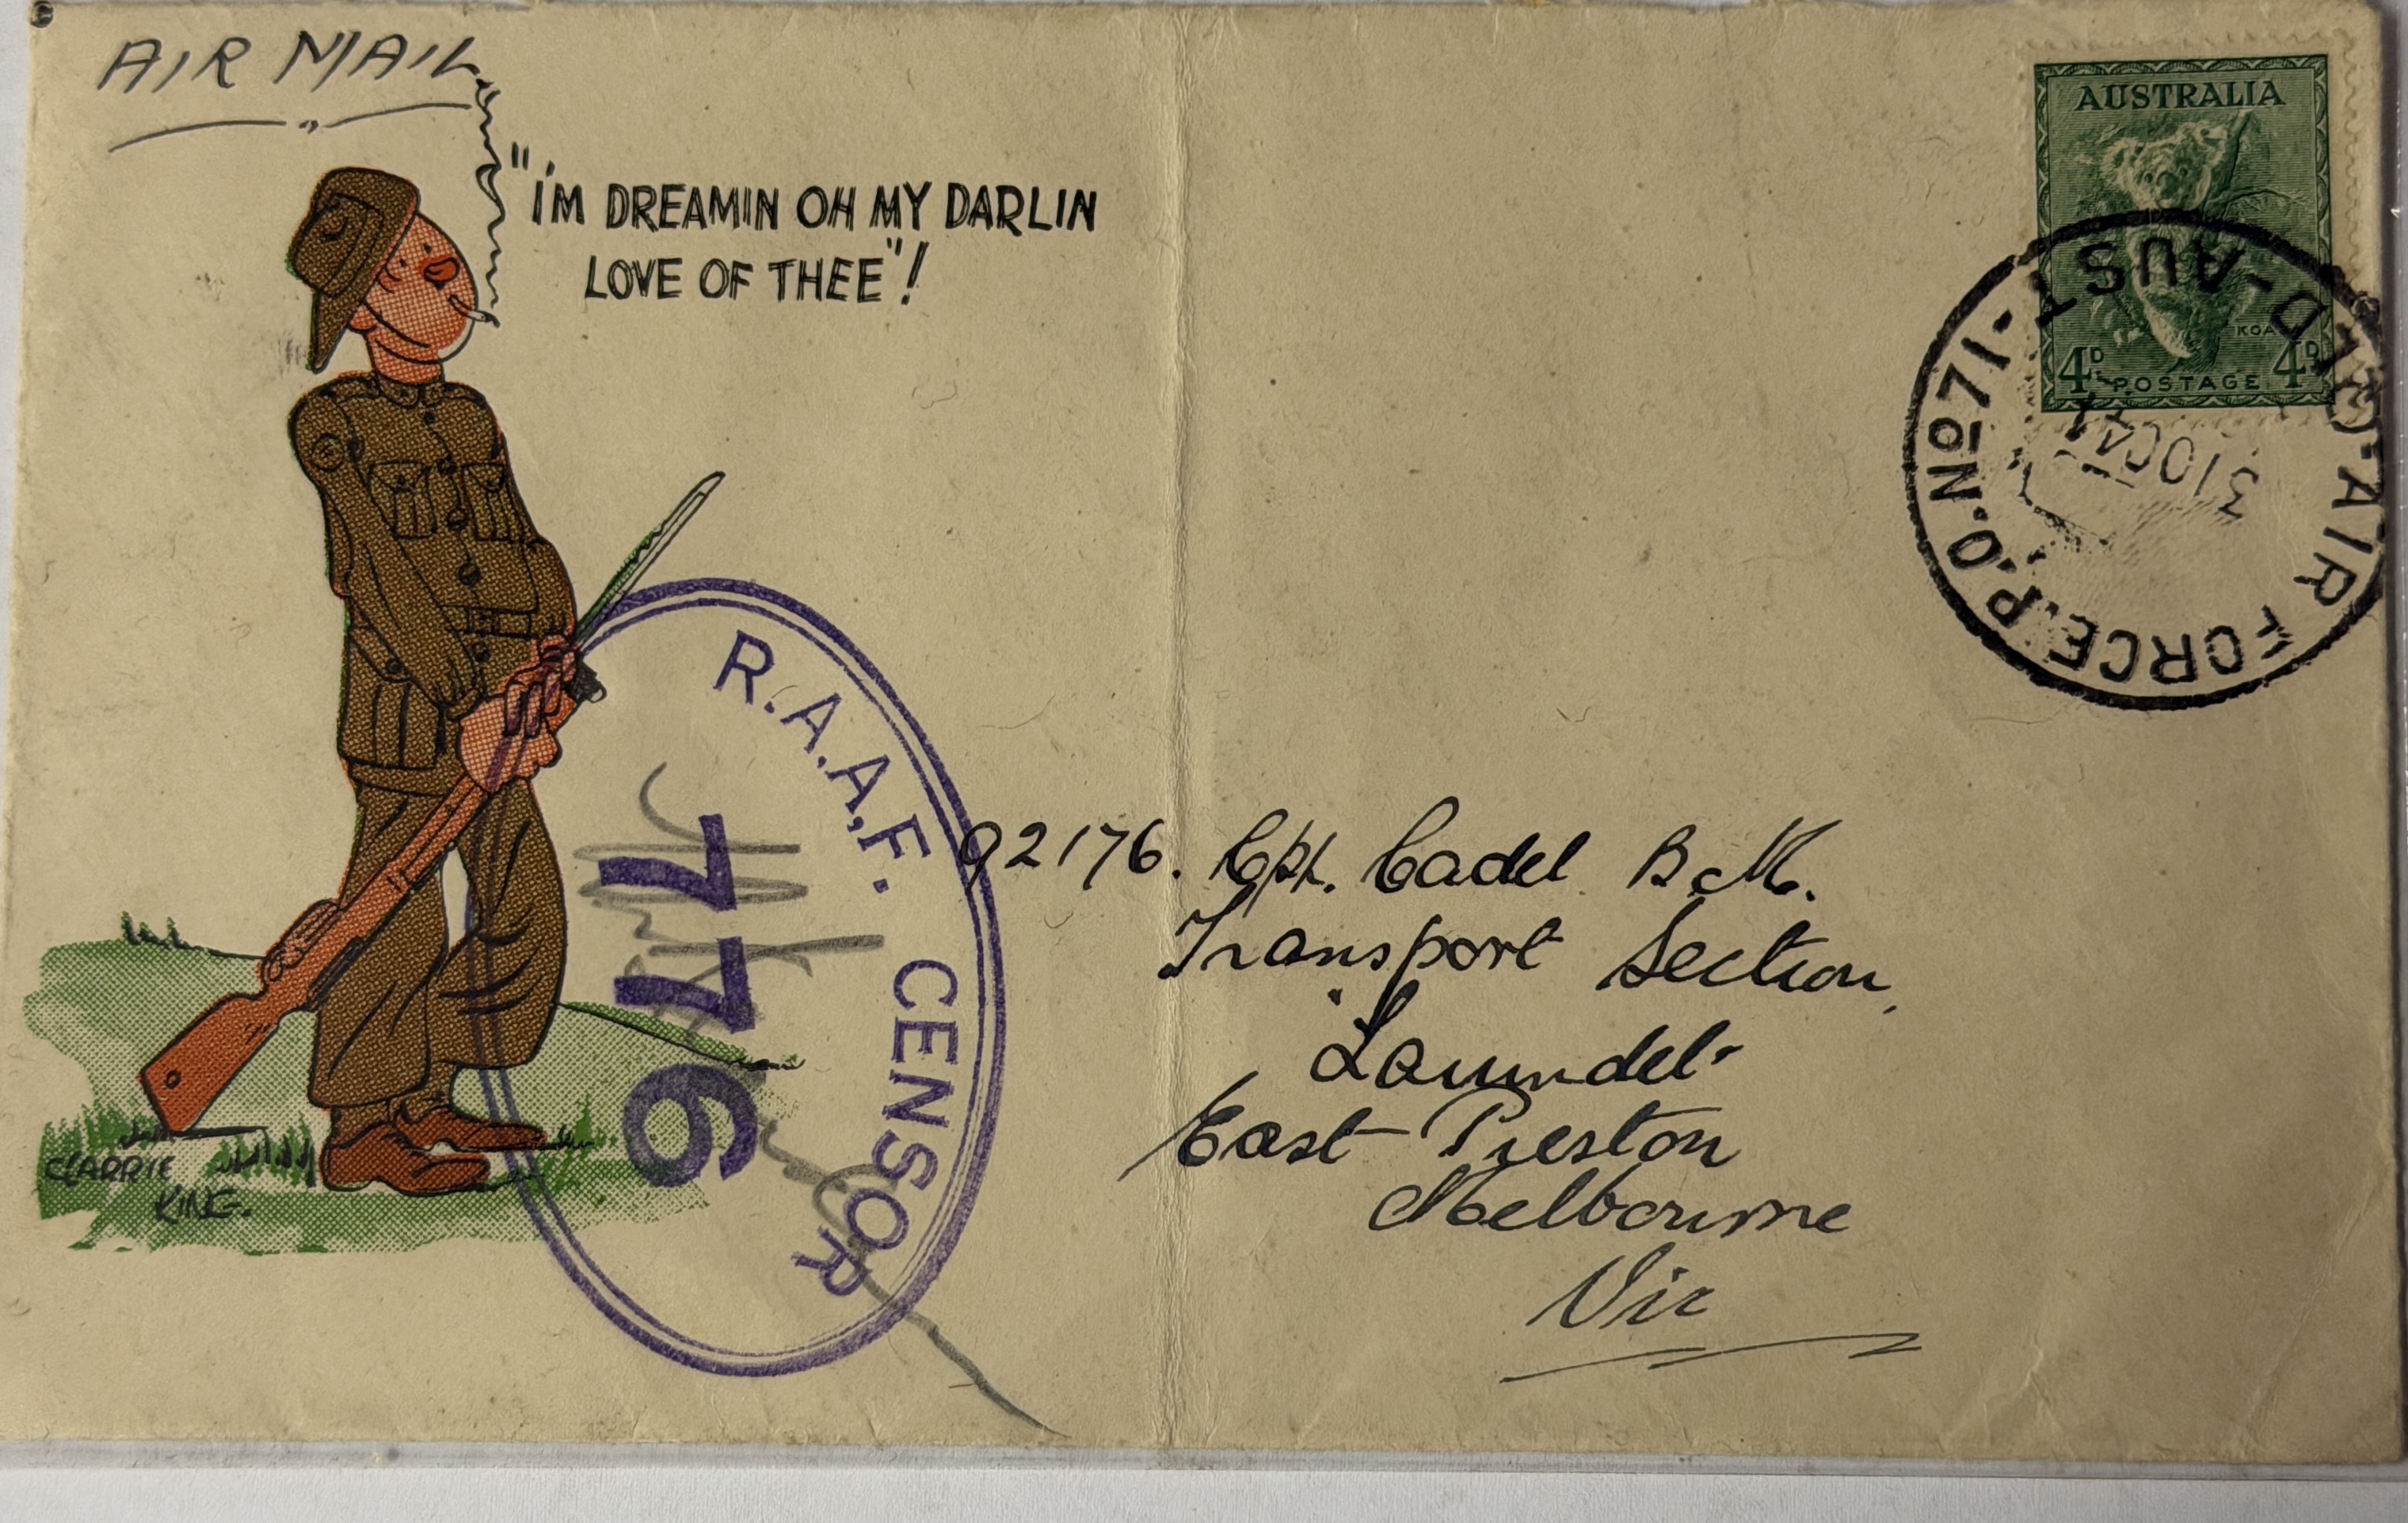 AIR MAIL
"I'M DREAMIN OH MY DARLIN
LOVE OF THEE"!
AUSTRALIA
KOALA
4D POSTAGE 4D
AIR FORCE.P.O. No 71-AUST
31 OC 44
R.A.A.F. CENSOR
776
92176. Cpl. Cadel B.M.
Transport Section,
"Laurundel"
East Preston
Melbourne
Vic
CLARRIE
KING.